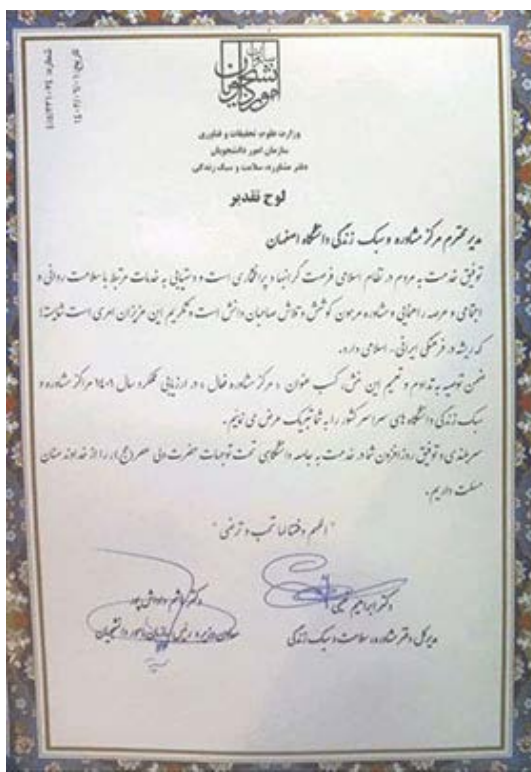 سازمان امور دانشجویان
تاریخ: ۱۴۰۲/۰۶/۰۱
شماره:
وزارت علوم، تحقیقات و فناوری
سازمان امور دانشجویان
دفتر مشاوره، سلامت و سبک زندگی
لوح تقدیر
مدیر محترم مرکز مشاوره و سبک زندگی دانشگاه اصفهان
توفیق خدمت به مردم در نظام اسلامی فرصت گرانبها و پرافتخاری است و دستیابی به خدمات مرتبط با سلامت روانی و
اجتماعی و عرصه راهنمایی و مشاوره مرهون کوشش و تلاش صاحبان دانش است و تکریم این عزیزان امری است شایسته؛
که ریشه در فرهنگی ایرانی - اسلامی دارد.
ضمن توصیه به تداوم و تعمیم این نقش، کسب عنوان « مرکز مشاوره فعال » در ارزیابی عملکرد سال ۱۴۰۱ مراکز مشاوره و
سبک زندگی دانشگاه های سراسر کشور را به شما تبریک عرض می نمایم.
سربلندی و توفیق روزافزون شما در خدمت به جامعه دانشگاهی تحت توجهات حضرت ولی عصر (عج)، را از خداوند منان
مسئلت داریم.
"اللهم وفقنا لما تحب و ترضی"
دکتر ابراهیم نعیمی
مدیرکل دفتر مشاوره، سلامت و سبک زندگی
دکتر هاشم داداش پور
معاون وزیر و رئیس سازمان امور دانشجویان